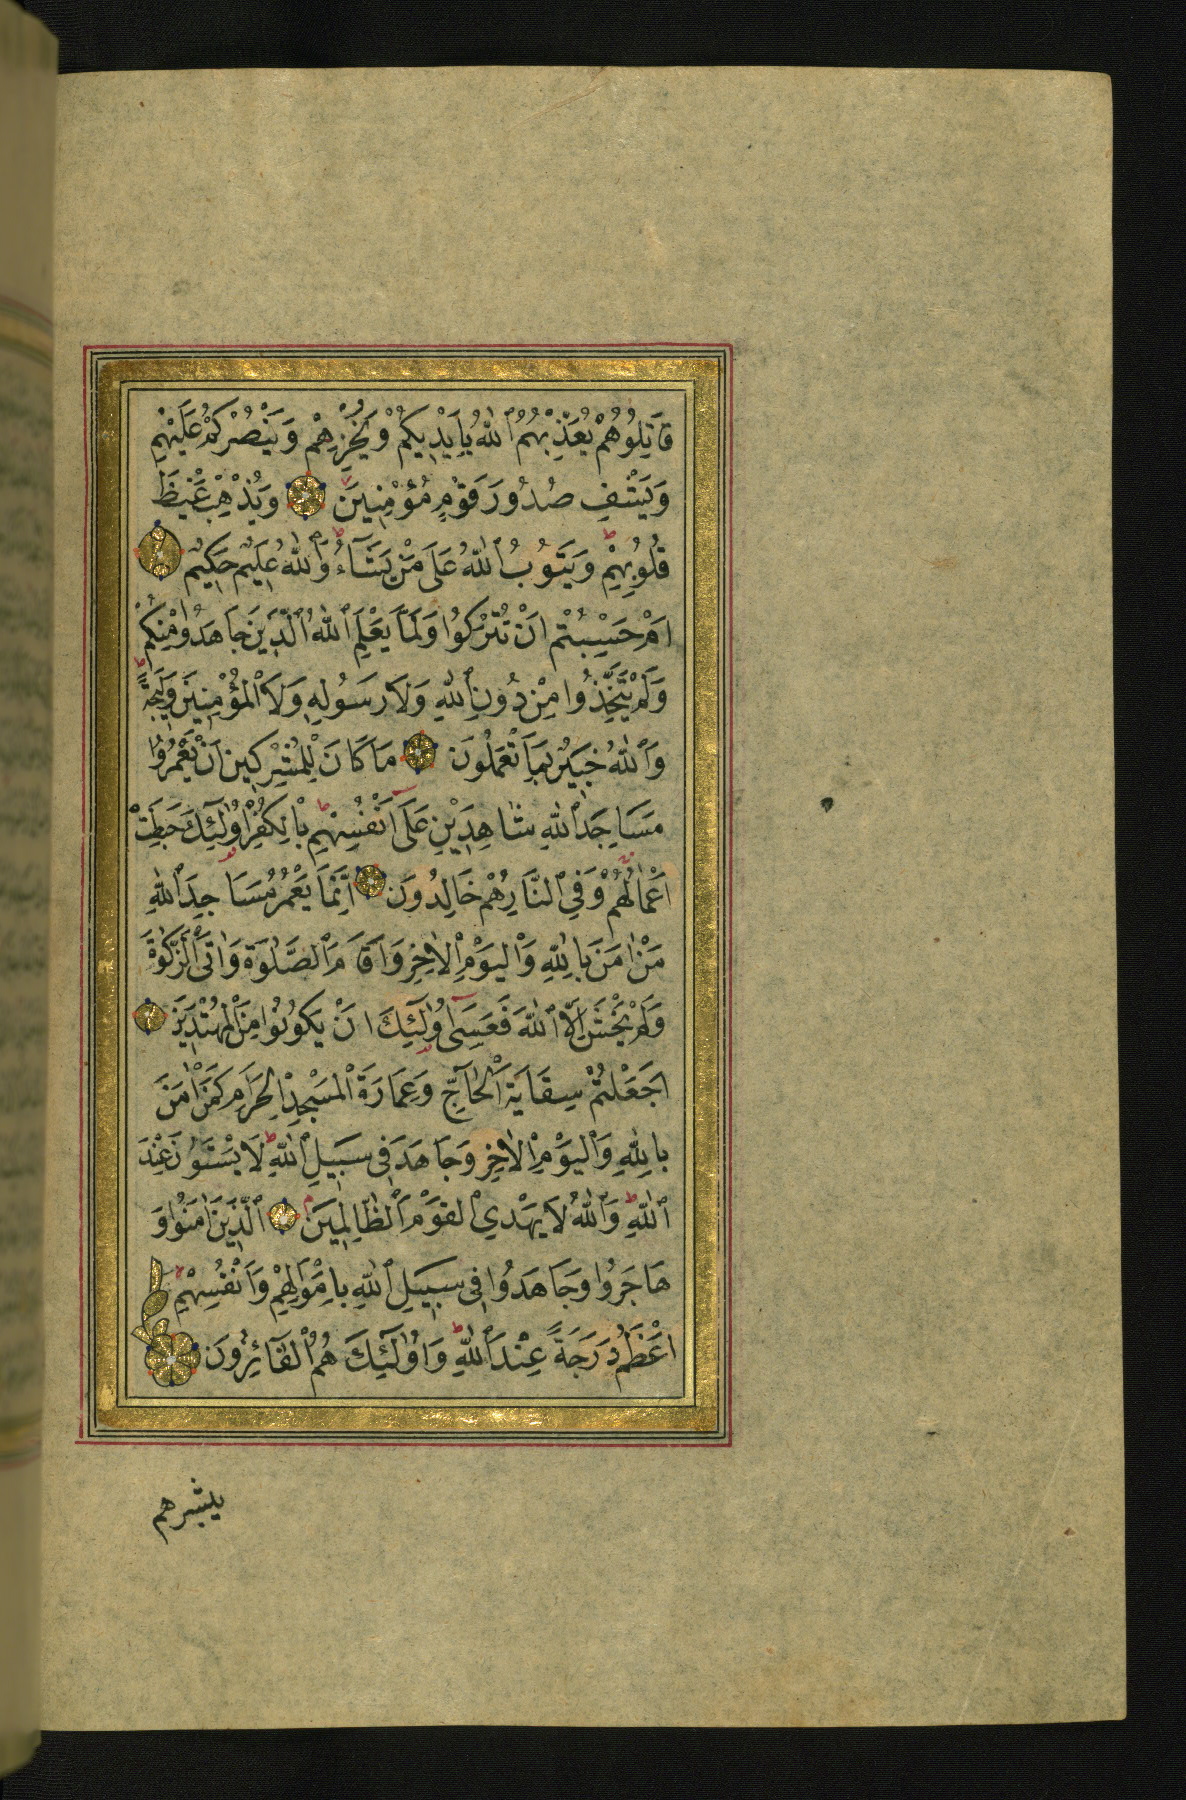 قَاتِلُوهُمْ يُعَذِّبْهُمُ ٱللّٰهُ بِاَيْدِيكُمْ وَيُخْزِهِمْ وَيَنْصُرْكُمْ عَلَيْهِمْ
وَيَشْفِ صُدُورَ قَوْمٍ مُؤْمِنِينَ وَيُذْهِبْ غَيْظَ
قُلُوبِهِمْ وَيَتُوبُ ٱللّٰهُ عَلَى مَنْ يَشَٓاءُ وَٱللّٰهُ عَلِيمٌ حَكِيمٌ
اَمْ حَسِبْتُمْ اَنْ تُتْرَكُوا وَلَمَّا يَعْلَمِ ٱللّٰهُ ٱلَّذِينَ جَاهَدُوا مِنْكُمْ
وَلَمْ يَتَّخِذُوا مِنْ دُونِ ٱللّٰهِ وَلَا رَسُولِهِ وَلَا ٱلْمُؤْمِنِينَ وَلِيجَةً
وَٱللّٰهُ خَبِيرٌ بِمَا تَعْمَلُونَ مَا كَانَ لِلْمُشْرِكِينَ اَنْ يَعْمُرُوا
مَسَاجِدَ ٱللّٰهِ شَاهِدِينَ عَلَى اَنْفُسِهِمْ بِالْكُفْرِ اُولٰٓئِكَ حَبِطَتْ
اَعْمَالُهُمْ وَفِي ٱلنَّارِ هُمْ خَالِدُونَ اِنَّمَا يَعْمُرُ مَسَاجِدَ ٱللّٰهِ
مَنْ اٰمَنَ بِاللّٰهِ وَٱلْيَوْمِ ٱلْاٰخِرِ وَاَقَامَ ٱلصَّلٰوةَ وَاٰتَى ٱلزَّكٰوةَ
وَلَمْ يَخْشَ اِلَّا ٱللّٰهَ فَعَسَى اُولٰٓئِكَ اَنْ يَكُونُوا مِنَ ٱلْمُهْتَدِينَ
اَجَعَلْتُمْ سِقَايَةَ ٱلْحَٓاجِّ وَعِمَارَةَ ٱلْمَسْجِدِ ٱلْحَرَامِ كَمَنْ اٰمَنَ
بِاللّٰهِ وَٱلْيَوْمِ ٱلْاٰخِرِ وَجَاهَدَ فِي سَبِيلِ ٱللّٰهِ لَا يَسْتَوُونَ عِنْدَ
ٱللّٰهِ وَٱللّٰهُ لَا يَهْدِي ٱلْقَوْمَ ٱلظَّالِمِينَ ٱلَّذِينَ اٰمَنُوا وَ
هَاجَرُوا وَجَاهَدُوا فِي سَبِيلِ ٱللّٰهِ بِاَمْوَالِهِمْ وَاَنْفُسِهِمْ
اَعْظَمُ دَرَجَةً عِنْدَ ٱللّٰهِ وَاُولٰٓئِكَ هُمُ ٱلْفَٓائِزُونَ
يبشرهم